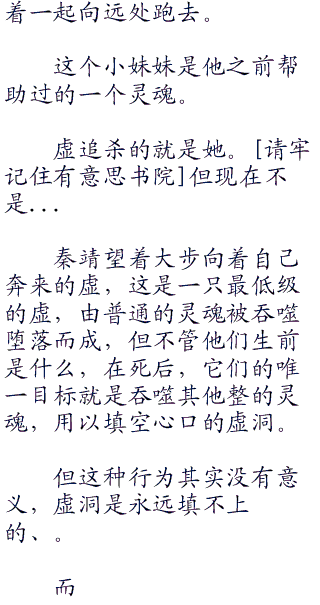 着一起向远处跑去。
这个小妹妹是他之前帮
助过的一个灵魂。
虚追杀的就是她。[请牢
记住有意思书院]但现在不
是...
秦靖望着大步向着自己
奔来的虚，这是一只最低级
的虚，由普通的灵魂被吞噬
堕落而成，但不管他们生前
是什么，在死后，它们的唯
一目标就是吞噬其他整的灵
魂，用以填空心口的虚洞。
但这种行为其实没有意
义，虚洞是永远填不上
的、。
而